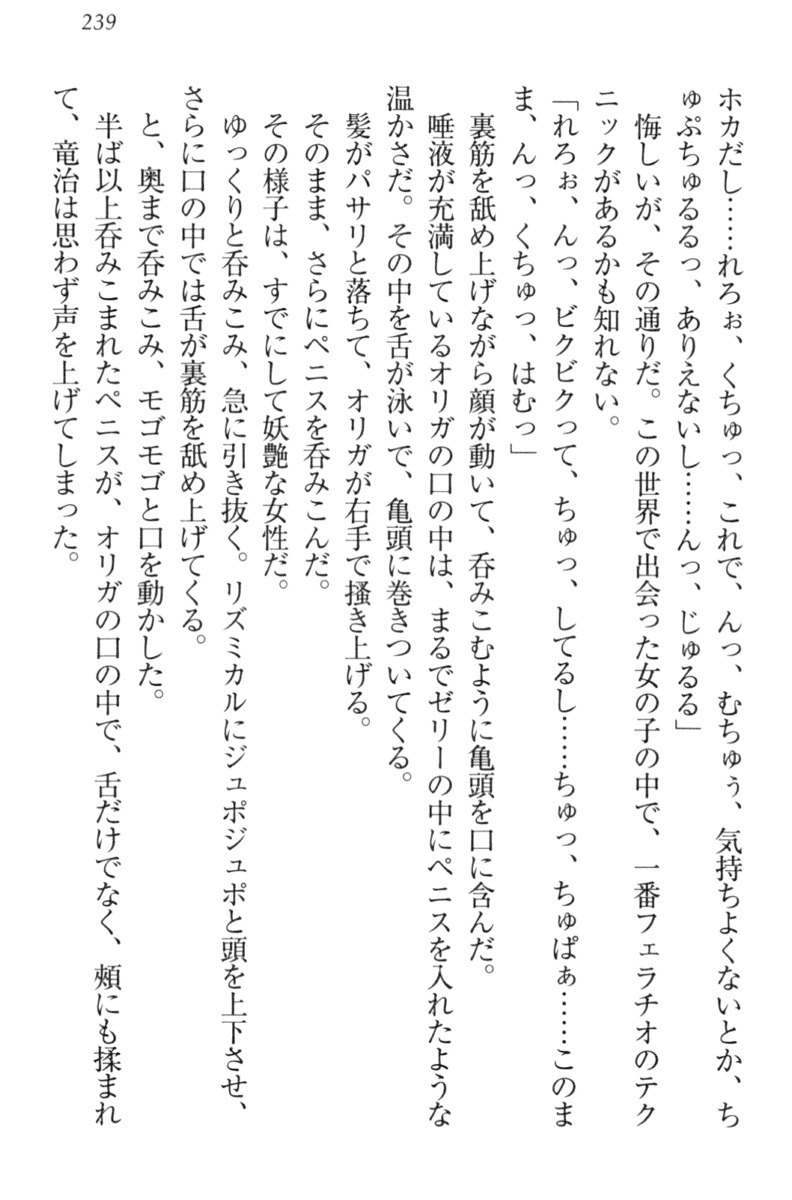 239
ホカだし……れろぉ、くちゅっ、これで、んっ、むちゅぅ、気持ちよくないとか、ち
ゅぷちゅるるっ、ありえないし……んっ、じゅるる」
悔しいが、その通りだ。この世界で出会った女の子の中で、一番フェラチオのテク
ニックがあるかも知れない。
「れろぉ、んっ、ビクビクって、ちゅっ、してるし……ちゅっ、ちゅぱぁ……このま
ま、んっ、くちゅっ、はむっ」
裏筋を舐め上げながら顔が動いて、呑みこむように亀頭を口に含んだ。
唾液が充満しているオリガの口の中は、まるでゼリーの中にペニスを入れたような
温かさだ。その中を舌が泳いで、亀頭に巻きついてくる。
髪がパサリと落ちて、オリガが右手で掻き上げる。
そのまま、さらにペニスを呑みこんだ。
その様子は、すでにして妖艶な女性だ。
ゆっくりと呑みこみ、急に引き抜く。リズミカルにジュポジュポと頭を上下させ、
さらに口の中では舌が裏筋を舐め上げてくる。
と、奥まで呑みこみ、モゴモゴと口を動かした。
半ば以上呑みこまれたペニスが、オリガの口の中で、舌だけでなく、頰にも揉まれ
て、竜治は思わず声を上げてしまった。